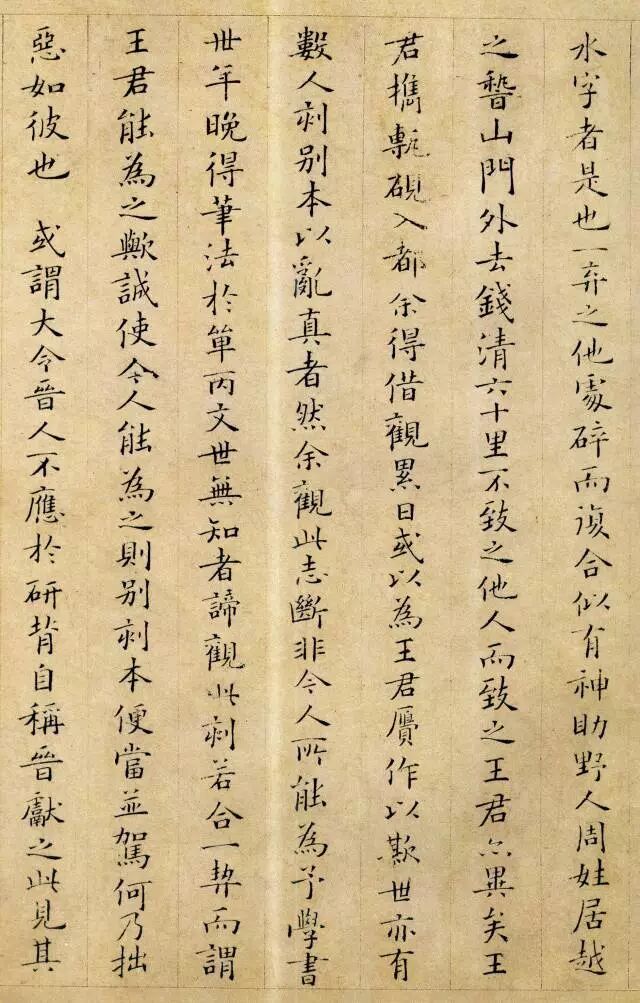 水字者是也一弃之他處碎而復合似有神助野人周姓居越
之稽山門外去錢清六十里不致之他人而致之王君亦異矣王
君攜甎硯入都余得借觀累日或以為王君贗作以欺世亦有
數人刻别本以亂真者然余觀此志斷非今人所能為予學書
卅年晚得筆法於單丙文世無知者諦觀此刻若合一契而謂
王君能為之歟誠使今人能為之則别刻本便當並駕何乃拙
惡如彼也 或謂大令晉人不應於研背自稱晉獻之此見其